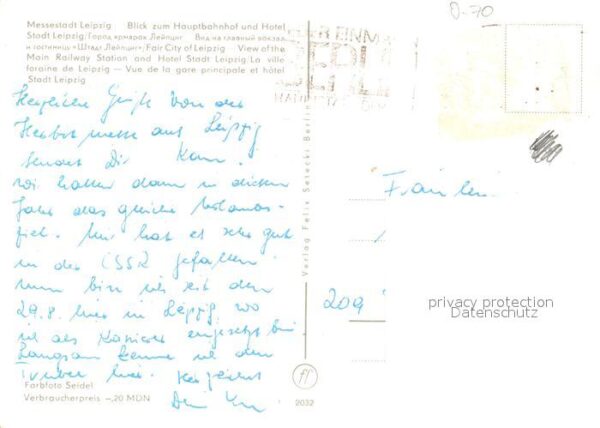 Messestadt Leipzig Blick zum Hauptbahnhof und Hotel
Stadt Leipzig/Город ярмарок Лейпциг Вид на главный вокзал
и гостиницу «Штадт Лейпциг»/Fair City of Leipzig View of the
Main Railway Station and Hotel Stadt Leipzig/La ville
foraine de Leipzig — Vue de la gare principale et hôtel
Stadt Leipzig
Herzliche Grüße von der
Herbstmesse aus Leipzig
sendet Dir
wir hatten dann in diesem
Jahr das gleiche Urlaubs-
ziel. Mir hat es sehr gut
in der CSSR gefallen
nun bin ich seit dem
29.8. hier in Leipzig, wo
ich als Kassierer eingesetzt bin
Langsam kenne ich den
Trubel hier. Herzlichst
Dein
Farbfoto Seidel
Verbraucherpreis —,20 MDN
Verlag Felix Setecki Berlin
2032
0-70
Fräulein
209
privacy protection
Datenschutz